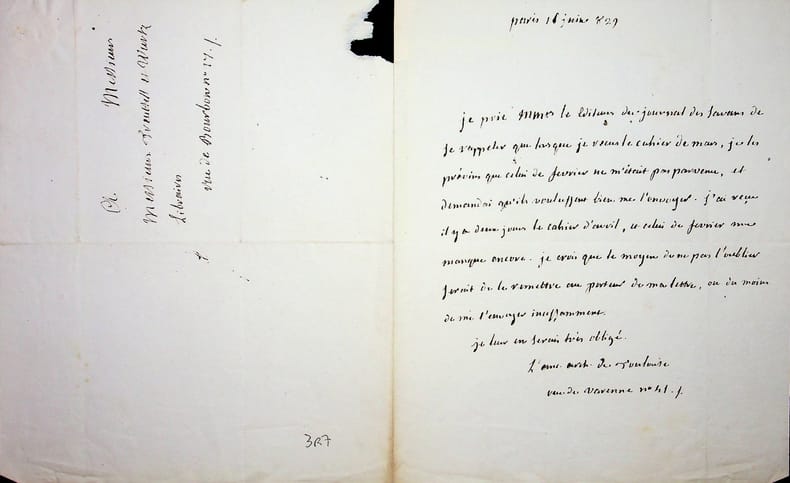 paris 16 juin 829
je prie MMrs les editeurs du journal des savans de
se rappeler que lorsque je recus le cahier de mars, je les
prévins que celui de fevrier ne m'était pas parvenu, et
demandai qu'ils voulussent bien me l'envoyer. j'ai reçu
il y a deux jours le cahier d'avril, et celui de fevrier me
manque encore. je crois que le moyen de ne pas l'oublier
serait de le remettre au porteur de ma lettre, ou du moins
de me l'envoyer incessamment.
je leur en serais très obligé.
L'anc. arch. de Toulouse
rue de Varenne n° 41.
A Messieurs
Messieurs Treuttel et Wurtz
Libraires
rue de Bourbon n° 17
3R7